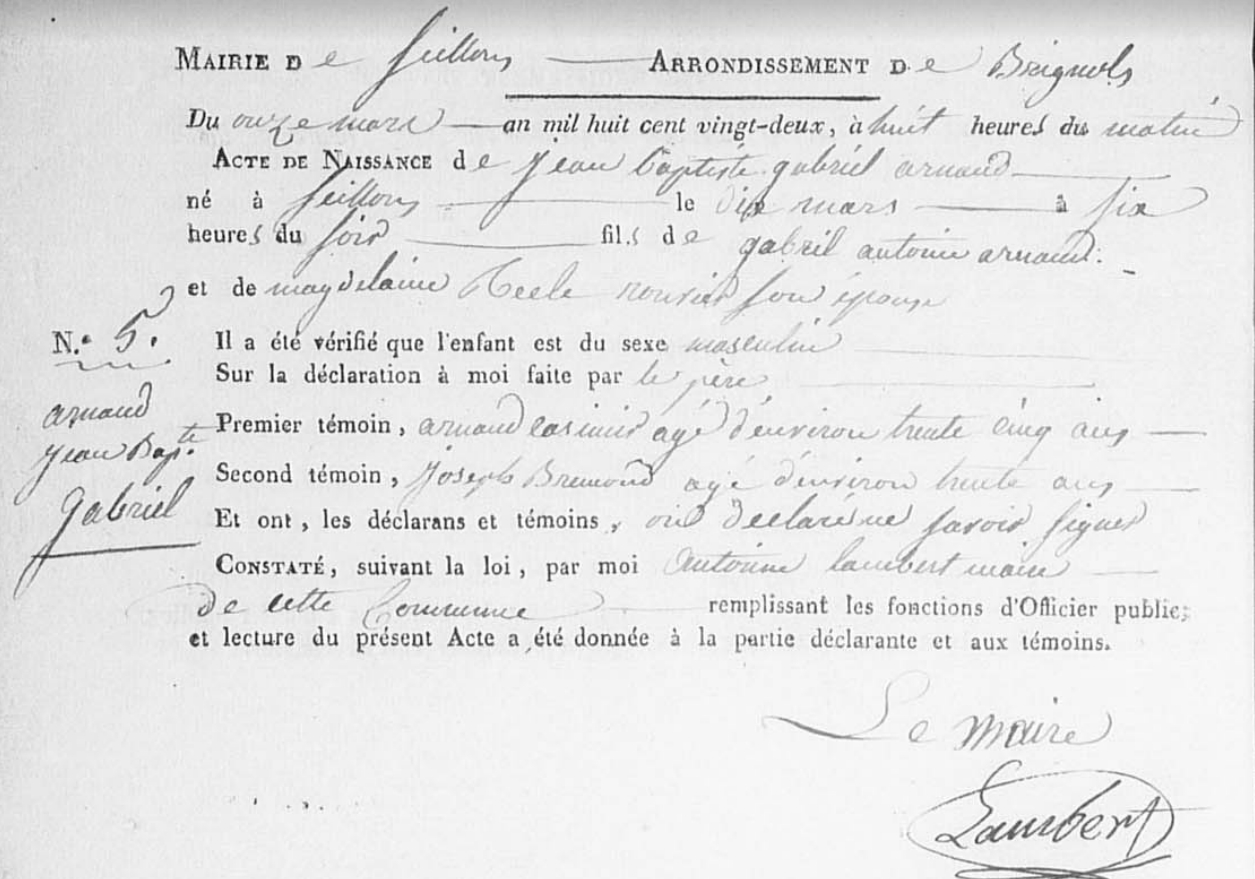 MAIRIE De Seillons ARRONDISSEMENT De Brignols
Du onze mars an mil huit cent vingt-deux, à huit heures du matin
ACTE DE NAISSANCE de jean baptiste gabriel arnaud
né à Seillons le dix mars à six
heures du soir fils de gabriel antoine arnaud.
et de magdelaine rouvier son épouse
N.° 5. Il a été vérifié que l'enfant est du sexe masculin
Sur la déclaration à moi faite par le père
arnaud
Jean Bap.te
gabriel
Premier témoin, arnaud casimir agé d'environ trente cinq ans
Second témoin, joseph Bremond agé d'environ trente ans
Et ont, les déclarans et témoins, ont déclaré ne savoir signer
CONSTATÉ, suivant la loi, par moi Antoine lambert maire
de cette Commune remplissant les fonctions d'Officier public;
et lecture du présent Acte a été donnée à la partie déclarante et aux témoins.
Le maire
Lambert